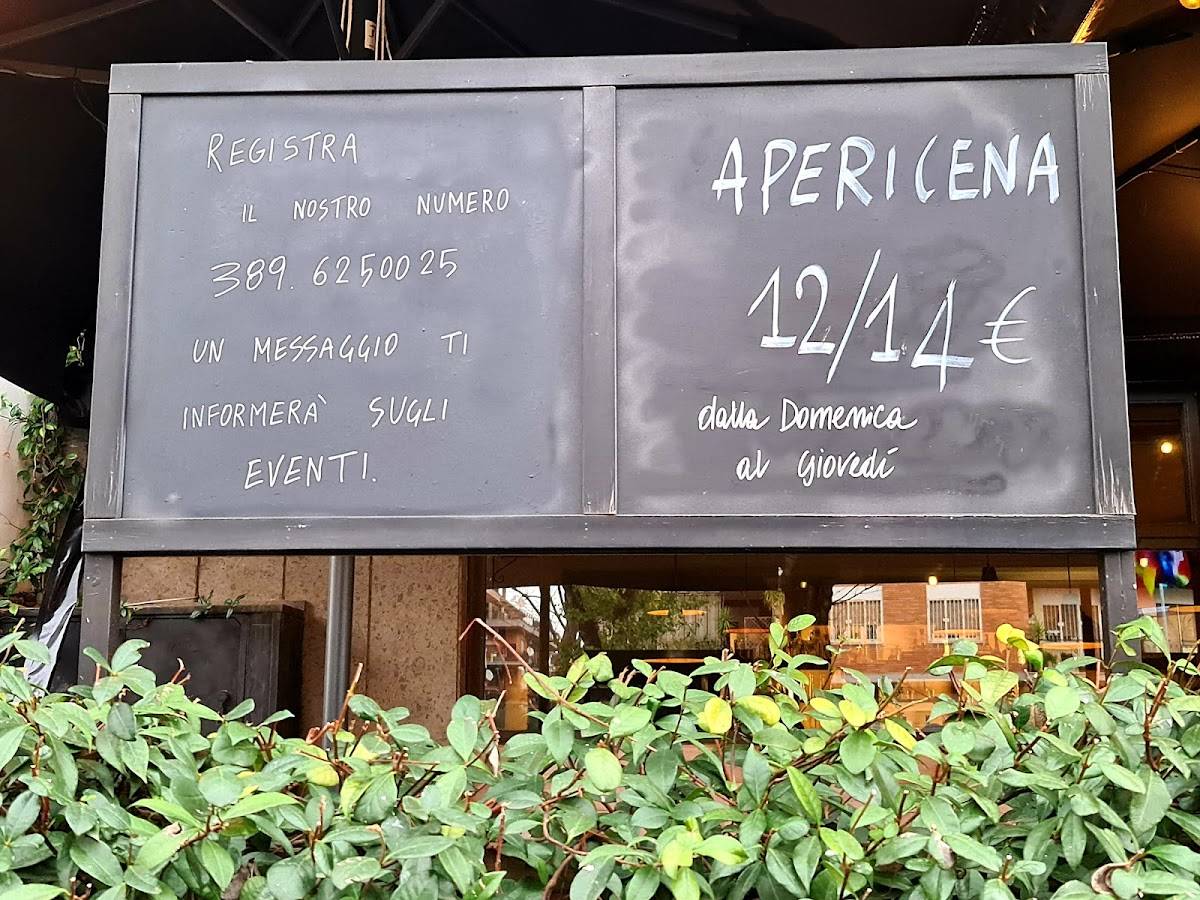 REGISTRA
IL NOSTRO NUMERO
389.6250025
UN MESSAGGIO TI
INFORMERA` SUGLI
EVENTI.
APERICENA
12/14€
dalla Domenica
al Giovedí